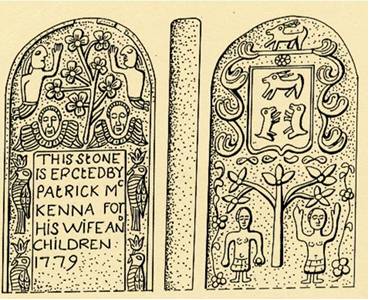 THIS STONE
IS EPCTED BY
PATRICK Mᶜ
KENNA FOR
HIS WIFE AN
CHILDREN
1779